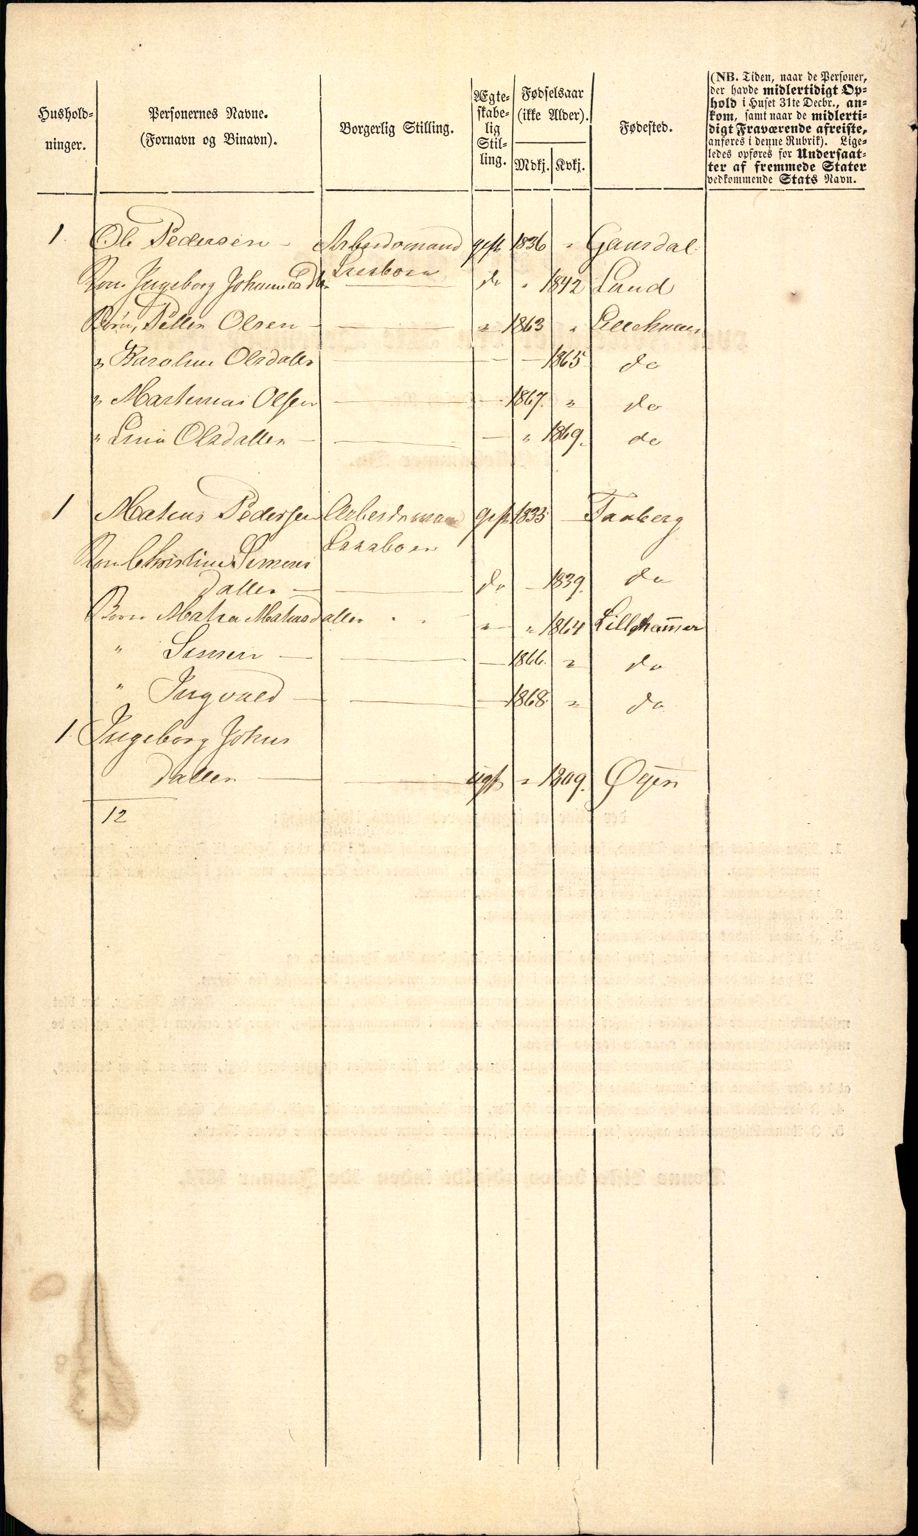 Hushold-
ninger.
Personernes Navne.
(Fornavn og Binavn).
Borgerlig Stilling.
Ægte-
skabe-
lig
Stil-
ling.
Fødselsaar
(ikke Alder).
Mdkj. Kvkj.
Fødested.
(NB. Tiden, naar de Personer,
der havde midlertidigt Op-
hold i Huset 31te Decbr., an-
kom, samt naar de midlerti-
digt Fraværende afreiste,
anføres i denne Rubrik). Lige-
ledes opføres for Undersaat-
ter af fremmede Stater
vedkommende Stats Navn.
1 Ole Pedersen - Arbeidsmand gift 1836 " Gausdal
Kone Ingeborg do " 1842 Land
Børn, Petter Olsen - " 1863 "
" Karoline Olsdatter 1865 do
" Martinus Olsen 1867. " do
" Lina Olsdatter - " 1869. do
1 Matias Pedersen Arbeidsmand gift 1835 Faaberg
Kone Christine Simens
datter do 1839. do
Børn Matea Matiasdatter " " 1864 Lillehammer
" Simen 1866 " do
" Ingvald 1868 " do
1 Ingeborg Johns
datter ugf " 1809. Øyer
12